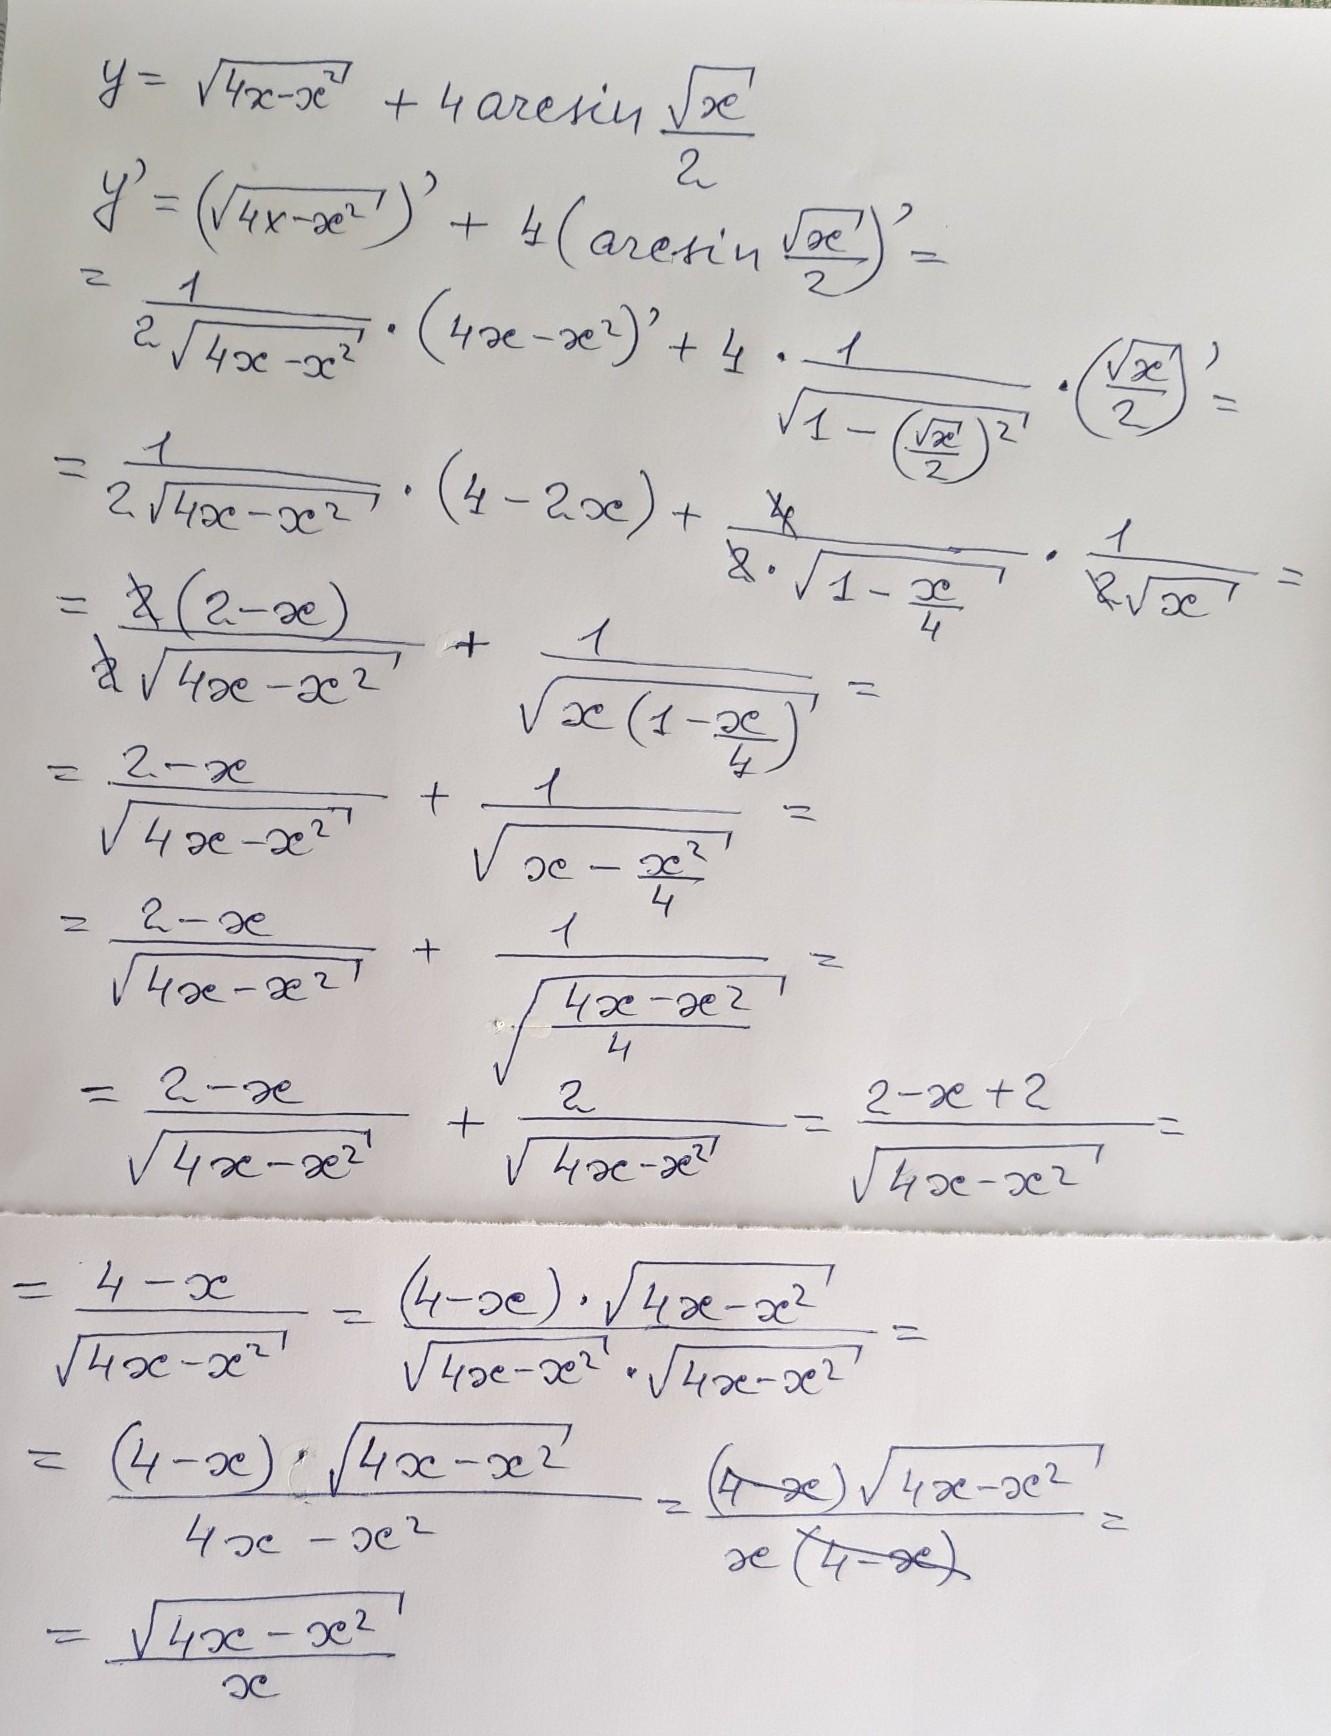 y = √(4x-x²) + 4 arcsin √x/2
y' = (√(4x-x²))' + 4(arcsin √x/2)' =
= 1/(2√(4x-x²)) · (4x-x²)' + 4 · 1/√(1-(√x/2)²) · (√x/2)' =
= 1/(2√(4x-x²)) · (4-2x) + 4/(2·√(1-x/4)) · 1/(2√x) =
= 2(2-x)/(2√(4x-x²)) + 1/√(x(1-x/4)) =
= (2-x)/√(4x-x²) + 1/√(x-x²/4) =
= (2-x)/√(4x-x²) + 1/√((4x-x²)/4) =
= (2-x)/√(4x-x²) + 2/√(4x-x²) = (2-x+2)/√(4x-x²) =
= (4-x)/√(4x-x²) = ((4-x)·√(4x-x²))/(√(4x-x²)·√(4x-x²)) =
= ((4-x)·√(4x-x²))/(4x-x²) = ((4-x)√(4x-x²))/(x(4-x)) =
= √(4x-x²)/x